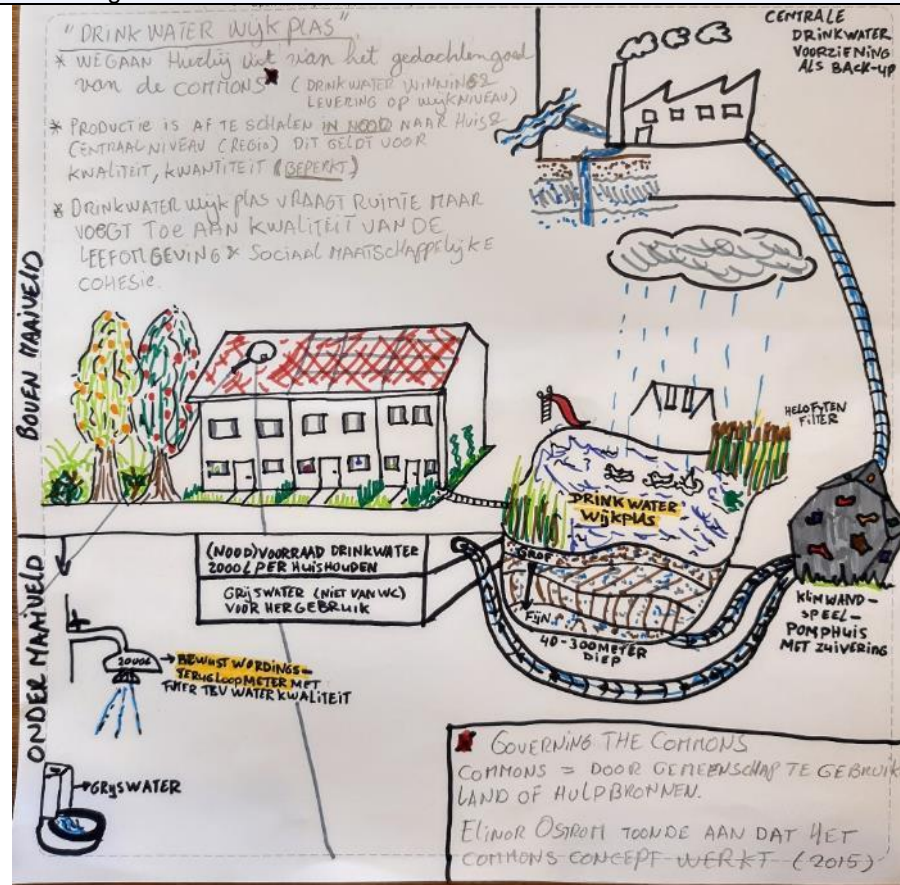 "DRINKWATER WIJKPLAS"
* WE GAAN Hierbij uit van het gedachtengoed
van de COMMONS* (DRINKWATER WINNING &
LEVERING OP WIJKNIVEAU)
* PRODUCTIE IS AF TE SCHALEN IN NOOD NAAR HUIS &
CENTRAAL NIVEAU (REGIO) DIT GELDT VOOR
KWALITEIT, KWANTITEIT (BEPERKT)
* DRINKWATER WIJKPLAS VRAAGT RUIMTE MAAR
VOEGT TOE AAN KWALITEIT VAN DE
LEEFOMGEVING & SOCIAAL MAATSCHAPPELIJKE
COHESIE.
CENTRALE
DRINKWATER
VOORZIENING
ALS BACK-UP
BOVEN MAAIVELD
HELOFYTEN
FILTER
DRINKWATER
WIJKPLAS
GROF
FIJN
40-300 METER
DIEP
KLIMWAND-
SPEEL-
POMPHUIS
MET ZUIVERING
(NOOD) VOORRAAD DRINKWATER
2000 L PER HUISHOUDEN
GRIJSWATER (NIET VAN WC)
VOOR HERGEBRUIK
ONDER MAAIVELD
BEWUSTWORDINGS-
TERUGLOOPMETER MET
FILTER TBV WATER KWALITEIT
GRIJSWATER
* GOVERNING THE COMMONS
COMMONS = DOOR GEMEENSCHAP TE GEBRUIK
LAND OF HULPBRONNEN.
ELINOR OSTROM TOONDE AAN DAT HET
COMMONS-CONCEPT WERKT (2015)